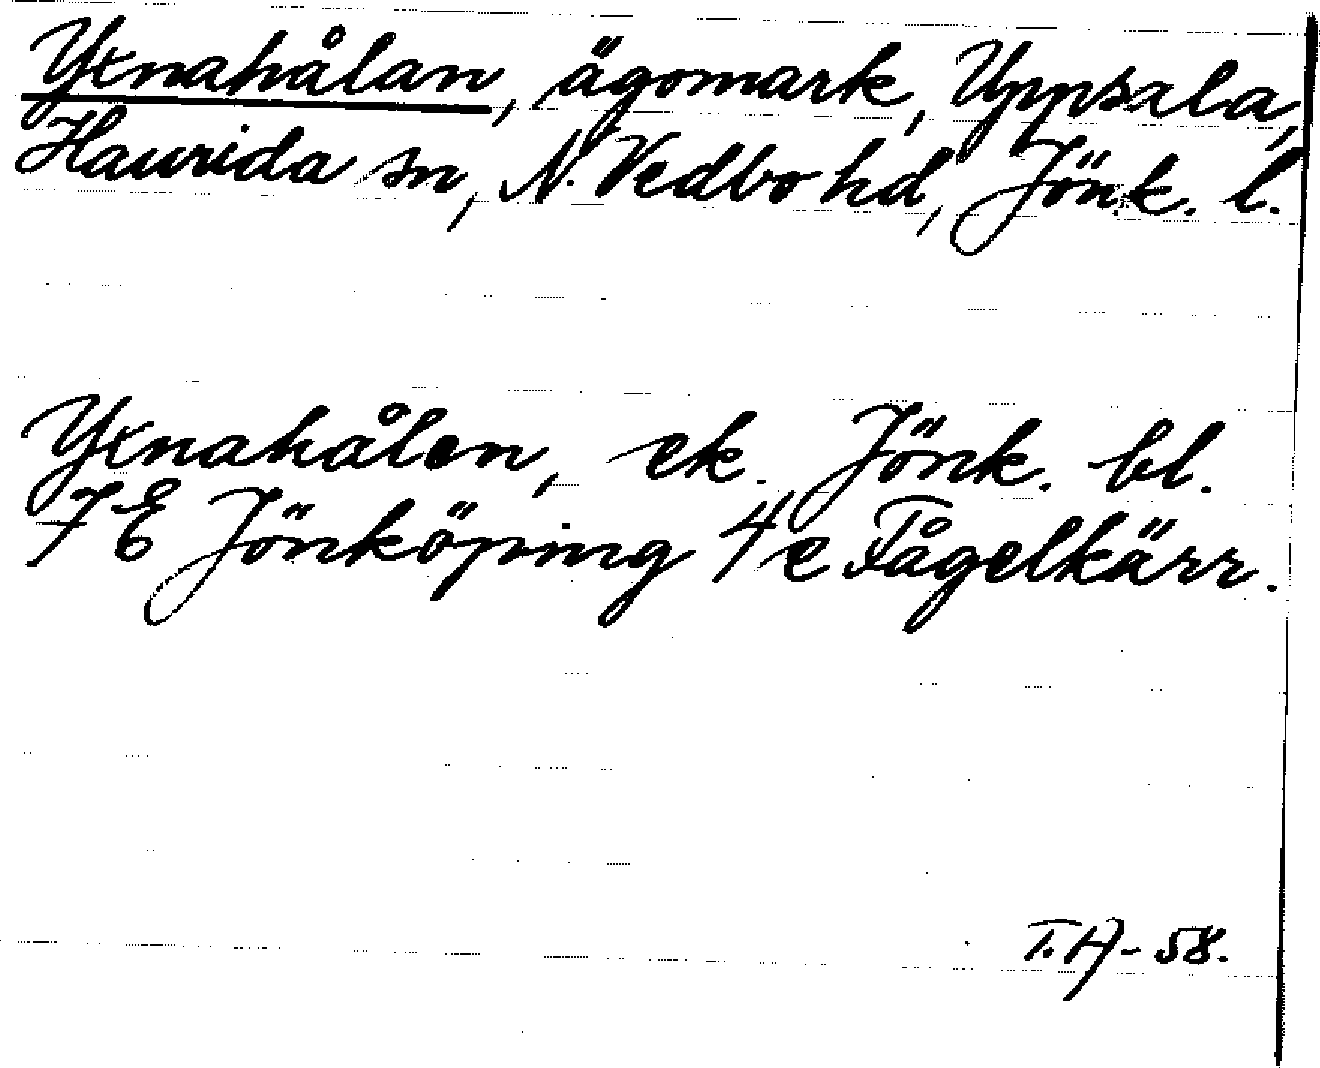 Yxnahålan, ägomark, Uppsala,
Haurida sn, N. Vedbo hd, Jönk. l.
Yxnahålen, ek. Jönk. bl.
7E Jönköping 4e Fågelkärr.
T.A-58.